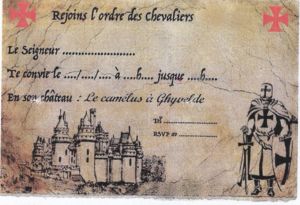 Rejoins l'ordre des Chevaliers
Le Seigneur ......................
Te convie le ..../..../.... à ....h.... jusque ....h....
En son château : Le camélus à Ghyvelde
RSVP au ...............